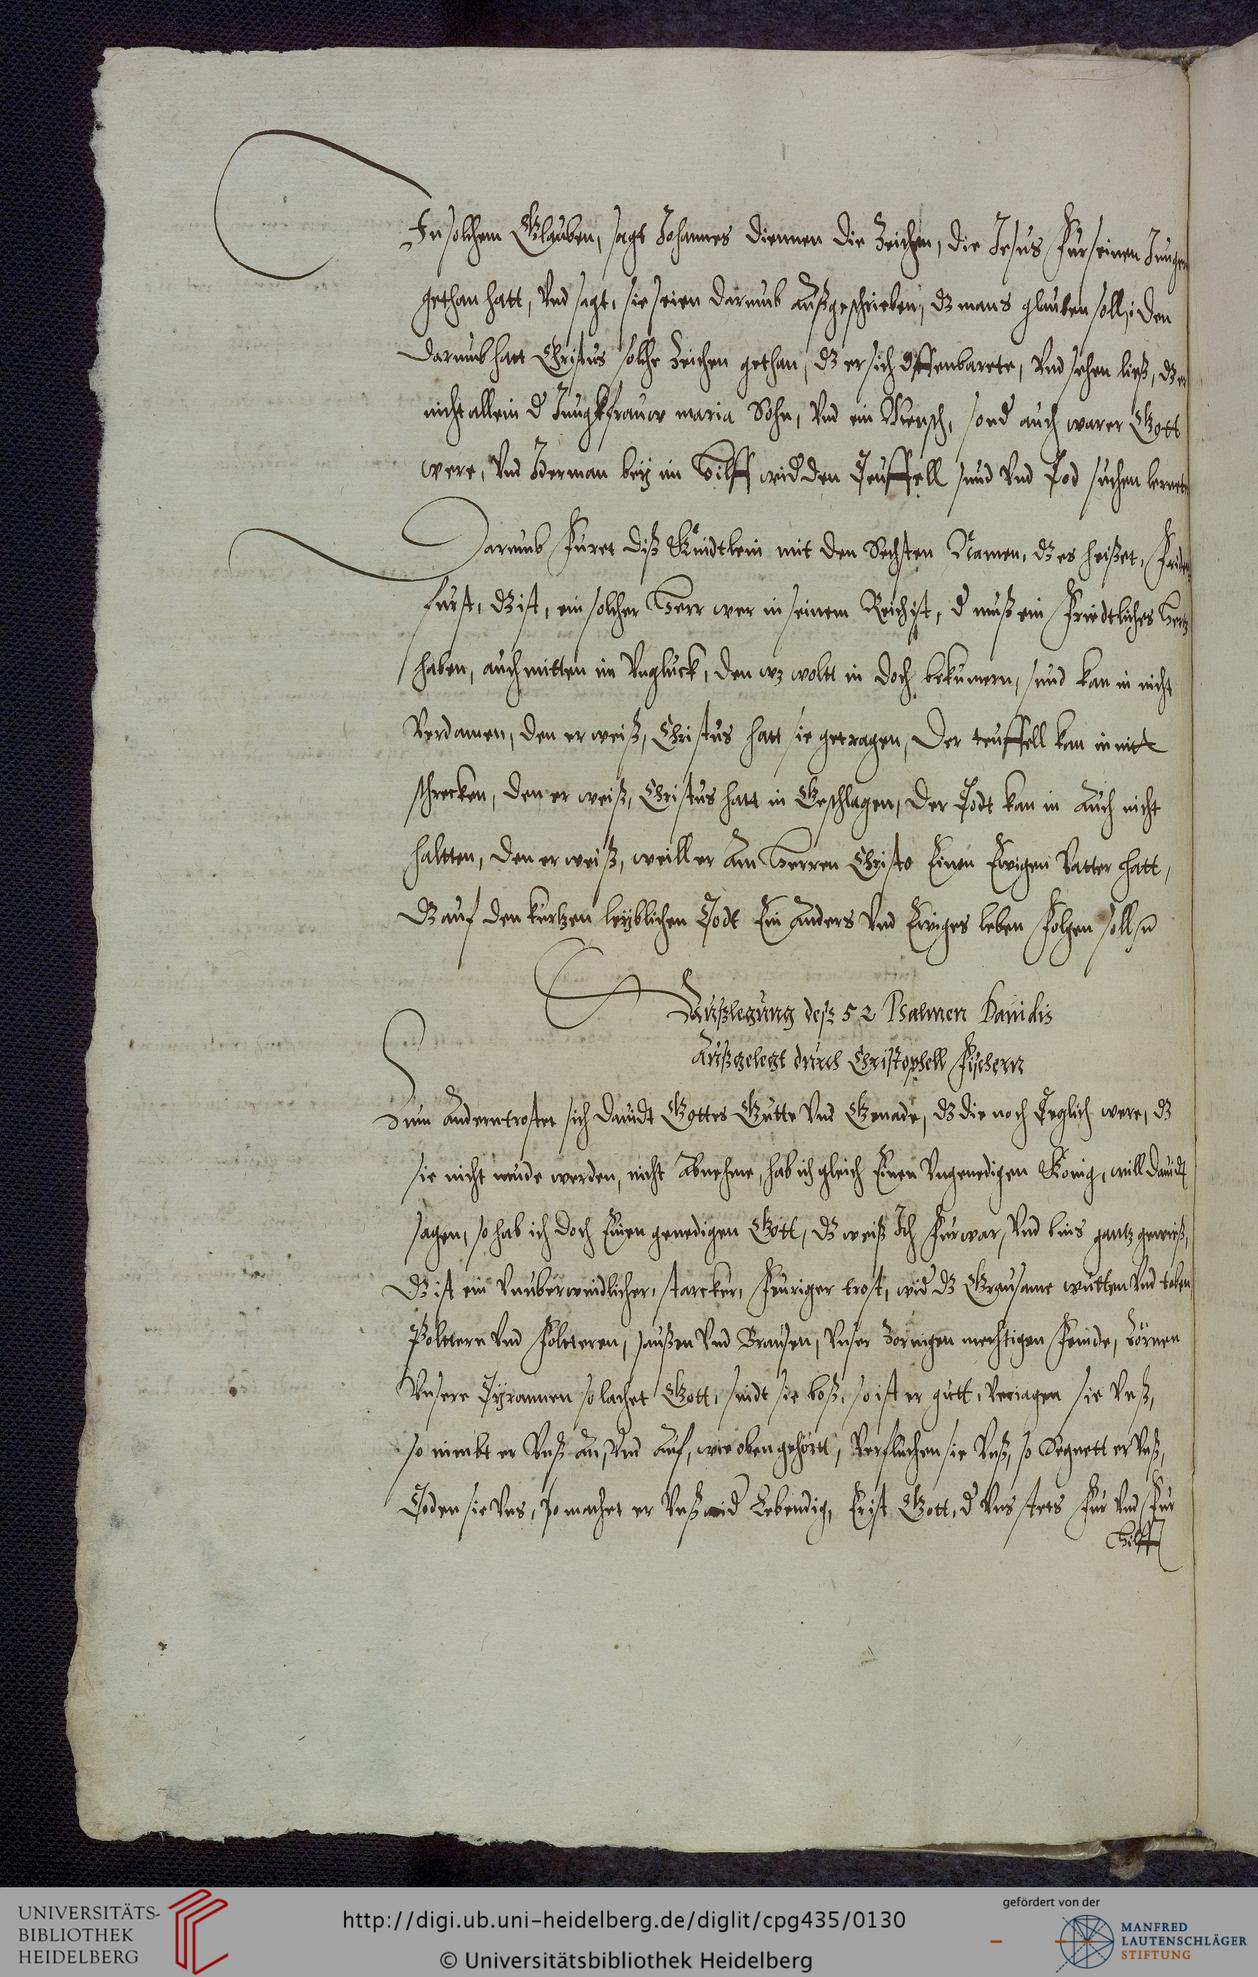 In solchem Glauben, sagt Johannes diennen die Zeichen, die Jesus Fur seinen Junger
gethan hatt, Vnd sagt, sie seien darumb Außgeschrieben, dz mans glauben soll, den
darumb hatt Christus solche Zeichen gethan, dz er sich offenbarete, Vnd sehen ließ, dz er
nicht allein d Jungkfrauw maria Sohn, Vnd ein Mensch, sond auch warer Gott
were, Vnd Jderman bey im Hilff wid den Teuffell sund Vnd Tod suchen lernete
Darumb Furet diß Kindtlein mit den Sechsten Namen, dz es heißet, Friden
furst, dz ist, ein solcher Herr wer in seinem Reich ist, d muß ein Friedtliches Hertz
haben, auch mitten im Vngluck, den wz woltt in doch bekumern, sund kan in nicht
Verdamen, den er weiß, Christus hatt sie getragen, Der teuffell kan in nitt
schrecken, den er weiß, Christus hatt in Geschlagen, Der Todt kan in Auch nicht
haltten, den er weiß, weill er Am Herren Christo Einen Ewigen Vatter hatt,
Dz auf den kurtzen leyblichen Todt Ein Anders Vnd Ewiges leben Folgen soll
Außlegung deß 52 Psalmen Dauidis
Außgelegt durch Christophell Fischern
Zum Anderntrostet sich Dauidt Gottes Gutte Vnd Genade, dz die noch Teglich were, dz
sie nicht mude werden, nicht Abnehme, hab ich gleich Einen Vngenedigen Konig, will Dauidt
sagen, so hab ich doch Einen genedigen Gott, dz weiß Ich Furwar, Vnd bins gantz gewiß,
Dz ist ein Vnuberwindlicher, starcker, Feuriger trost, wid dz Grausame wutten Vnd toben
Poltern Vnd Folteren, saußen Vnd Brausen, Vnser Zornigen mechtigen Feinde, Zörnen
Vnsere Tyrannen so lachet Gott, sindt sie boß, so ist er gutt, Veriagen sie Vnß,
so nimbt er Vnß An, Vnd Auf, wie oben gehört, Verfluchen sie Vnß, so Segnett er Vnß,
Toden sie Vns, so machet er Vnß wid Lebendig, Er ist Gott, d Vns stets Fur Vnd Fur
Hilff
UNIVERSITÄTS-
BIBLIOTHEK
HEIDELBERG
http://digi.ub.uni-heidelberg.de/diglit/cpg435/0130
© Universitätsbibliothek Heidelberg
gefördert von der
MANFRED
LAUTENSCHLÄGER
STIFTUNG